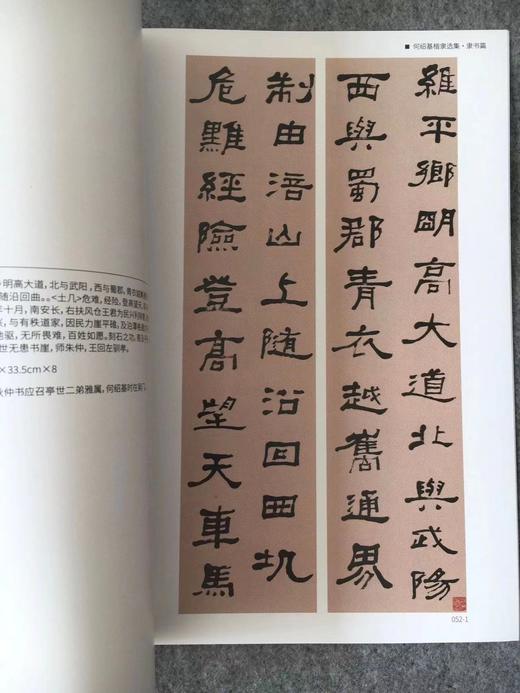 ■ 何绍基楷隶选集·隶书篇
維平鄉朙高大道北與武陽
西與蜀郡青衣越舊通界
制由涪山上随沿回曲
危難經險登高望天車馬
052-1
明高大道，北与武阳，西与蜀郡，青衣
随沿回曲。。<土几>危难，经险，登高望天，
年十月，南安长，右扶风仓王君为民兴利
与有秩道家，因民力崖平
驱，无所畏难，百姓如愿。刻石之功，
世无患书崖，师朱仲，王回左钏亭。
×33.5cm×8
秋仲书应召亭世二弟雅属，何绍基时在